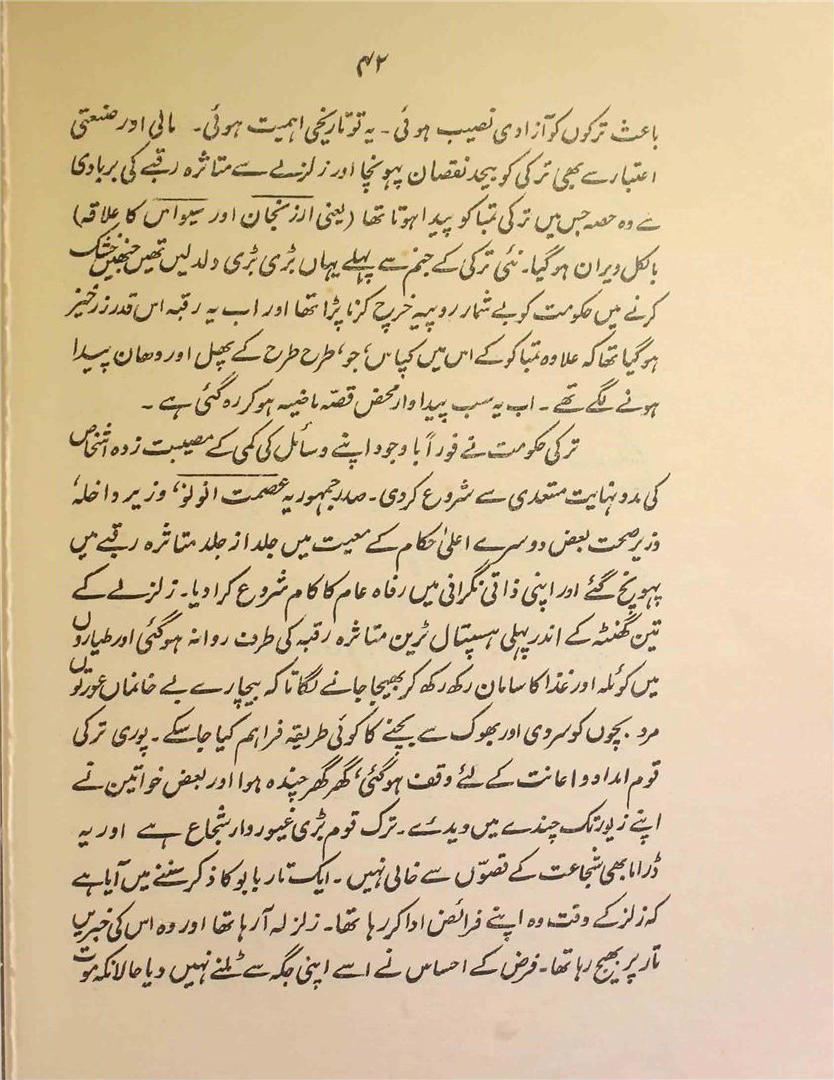 ۴۲
باعث ترکوں کو آزادی نصیب ہوئی۔ یہ تو تاریخی اہمیت ہوئی۔ مالی اور صنعتی
اعتبار سے بھی ترکی کو بیحد نقصان پہونچا اور زلزلے سے متاثرہ رقبے کی بربادی
سے وہ حصہ جس میں ترکی تمباکو پیدا ہوتا تھا (یعنی ارزنجان اور سیواس کا علاقہ)
بالکل ویران ہو گیا۔ نئی ترکی کے جنم سے پہلے یہاں بڑی بڑی دلدلیں تھیں جنھیں خشک
کرنے میں حکومت کو بے شمار روپیہ خرچ کرنا پڑا تھا اور اب یہ رقبہ اس قدر زرخیز
ہو گیا تھا کہ علاوہ تمباکو کے اس میں کپاس، جو، طرح طرح کے پھل اور دھان پیدا
ہونے لگے تھے۔ اب یہ سب پیداوار محض قصّہ ماضیہ ہو کر رہ گئی ہے۔
ترکی حکومت نے فوراً باوجود اپنے وسائل کی کمی کے مصیبت زدہ اشخاص
کی مدد نہایت مستعدی سے شروع کر دی۔ صدر جمہوریہ عصمت انونو، وزیر داخلہ،
وزیر صحت بعض دوسرے اعلیٰ حکام کے معیت میں جلد از جلد متاثرہ رقبے میں
پہونچ گئے اور اپنی ذاتی نگرانی میں رفاہ عام کا کام شروع کرا دیا۔ زلزلے کے
تین گھنٹہ کے اندر پہلی ہسپتال ٹرین متاثرہ رقبہ کی طرف روانہ ہو گئی اور طیاروں
میں کوئلہ اور غذا کا سامان رکھ رکھ کر بھیجا جانے لگا تا کہ بیچارے بے خانماں عورتوں
مرد بچوں کو سردی اور بھوک سے بچنے کا کوئی طریقہ فراہم کیا جا سکے۔ پوری ترکی
قوم امداد و اعانت کے لئے وقف ہو گئی، گھر گھر چندہ ہوا اور بعض خواتین نے
اپنے زیور تک چندے میں دیدئے۔ ترک قوم بڑی غیور و ارشجاع ہے اور یہ
ڈراما بھی شجاعت کے قصّوں سے خالی نہیں۔ ایک تار بابو کا ذکر سننے میں آیا ہے
کہ زلزلے کے وقت وہ اپنے فرائض ادا کر رہا تھا۔ زلزلہ آ رہا تھا اور وہ اس کی خبریں
تار پر بھیج رہا تھا۔ فرض کے احساس نے اسے اپنی جگہ سے ٹلنے نہیں دیا حالانکہ موت